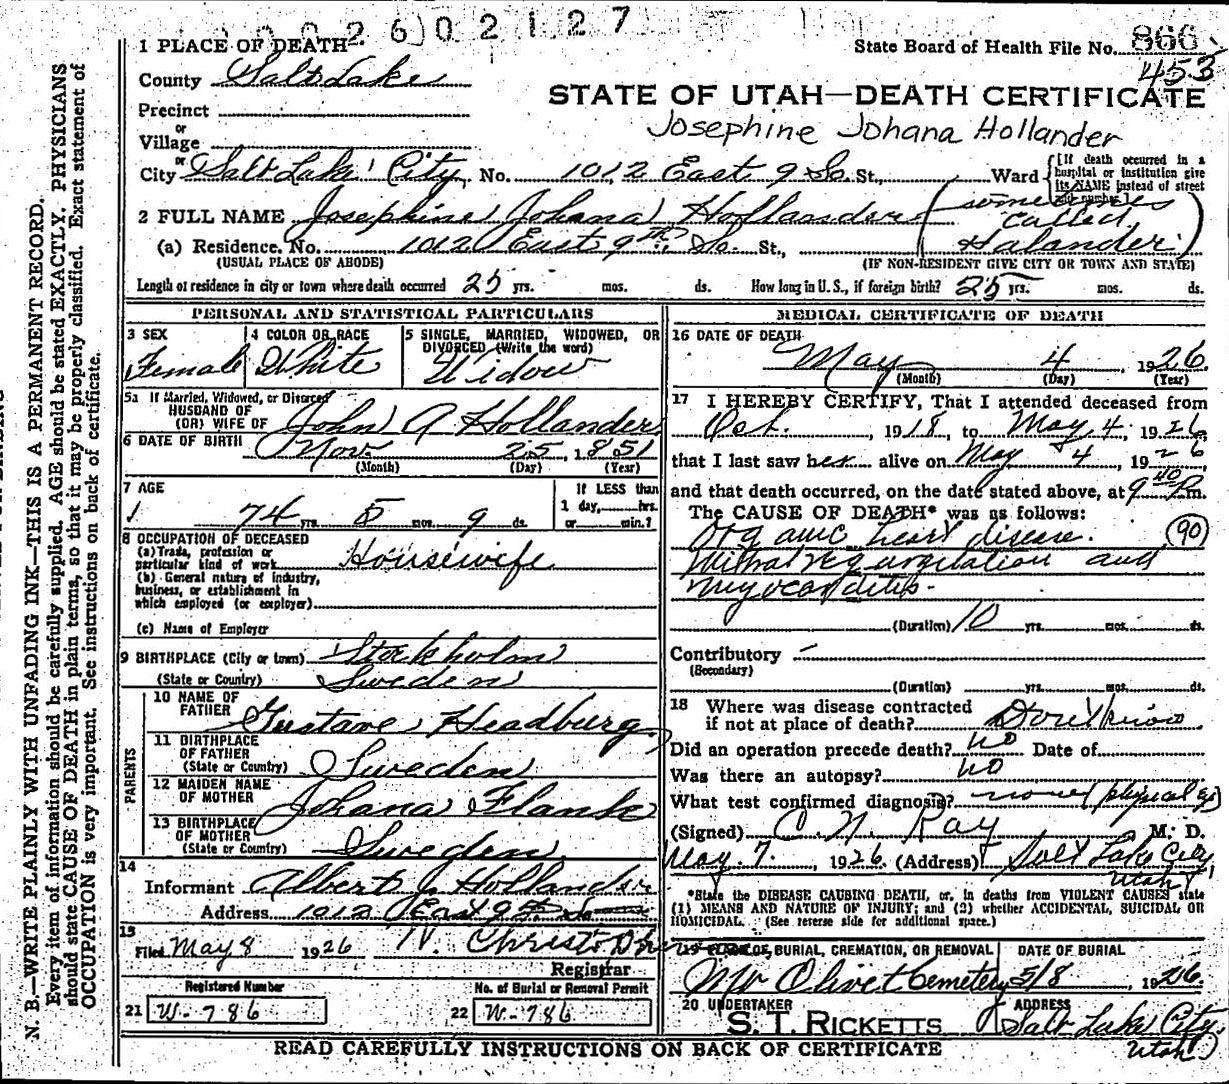 0026 02127
1 PLACE OF DEATH
State Board of Health File No. 866
453
County Salt Lake
STATE OF UTAH—DEATH CERTIFICATE
Precinct
Josephine Johana Hollander
or
Village
or
City Salt Lake City No. 1012 East 9 So. St., Ward
[If death occurred in a hospital or institution give its NAME instead of street and number.]
2 FULL NAME Josephine Johana Hollander (sometimes called Halander.)
(a) Residence. No. 1012 East 9th So. St.,
(USUAL PLACE OF ABODE) (IF NON-RESIDENT GIVE CITY OR TOWN AND STATE)
Length of residence in city or town where death occurred 25 yrs. mos. ds. How long in U. S., if foreign birth? 25 yrs. mos. ds.
PERSONAL AND STATISTICAL PARTICULARS
3 SEX
Female
4 COLOR OR RACE
White
5 SINGLE, MARRIED, WIDOWED, OR
DIVORCED (Write the word)
Widow
5a If Married, Widowed, or Divorced
HUSBAND OF
(OR) WIFE OF John A Hollander
6 DATE OF BIRTH Nov. 25, 1851
(Month) (Day) (Year)
7 AGE
74 yrs. 5 mos. 9 ds.
If LESS than
1 day, hrs.
or min.?
8 OCCUPATION OF DECEASED
(a) Trade, profession or
particular kind of work Housewife
(b) General nature of industry,
business, or establishment in
which employed (or employer)
(c) Name of Employer
9 BIRTHPLACE (City or town) Stockholm
(State or Country) Sweden
PARENTS
10 NAME OF
FATHER Gustave Headburg
11 BIRTHPLACE
OF FATHER
(State or Country) Sweden
12 MAIDEN NAME
OF MOTHER Johana Flank
13 BIRTHPLACE
OF MOTHER
(State or Country) Sweden
14
Informant Albert J Hollander
Address 1012 East 9th So
15
Filed May 8 1926 N. Christopher
Registrar
Registered Number
21 W-786
No. of Burial or Removal Permit
22 W-786
MEDICAL CERTIFICATE OF DEATH
16 DATE OF DEATH
May 4, 1926.
(Month) (Day) (Year)
17 I HEREBY CERTIFY, That I attended deceased from
Oct. , 1918, to May 4, 1926,
that I last saw her alive on May 4, 1926
and that death occurred, on the date stated above, at 9 40 P.m.
The CAUSE OF DEATH* was as follows:
Organic heart disease. (90)
Mitral regurgitation and
myocarditis.
(Duration) 10 yrs. mos. ds.
Contributory —
(Secondary)
(Duration) yrs. mos. ds.
18 Where was disease contracted
if not at place of death? Don't know
Did an operation precede death? no Date of
Was there an autopsy? no
What test confirmed diagnosis? none (physical
(Signed) C. N. Ray M. D.
May. 7. , 1926 (Address) Salt Lake City
Utah
*State the DISEASE CAUSING DEATH, or, in deaths from VIOLENT CAUSES state
(1) MEANS AND NATURE OF INJURY; and (2) whether ACCIDENTAL, SUICIDAL OR
HOMICIDAL. (See reverse side for additional space.)
19 PLACE OF BURIAL, CREMATION, OR REMOVAL
Mt Olivet Cemetery
DATE OF BURIAL
5/8 , 1926.
20 UNDERTAKER
S. T. RICKETTS
ADDRESS
Salt Lake City
Utah
READ CAREFULLY INSTRUCTIONS ON BACK OF CERTIFICATE
N. B.—WRITE PLAINLY WITH UNFADING INK—THIS IS A PERMANENT RECORD.
Every item of information should be carefully supplied. AGE should be stated EXACTLY. PHYSICIANS
should state CAUSE OF DEATH in plain terms, so that it may be properly classified. Exact statement of
OCCUPATION is very important. See instructions on back of certificate.